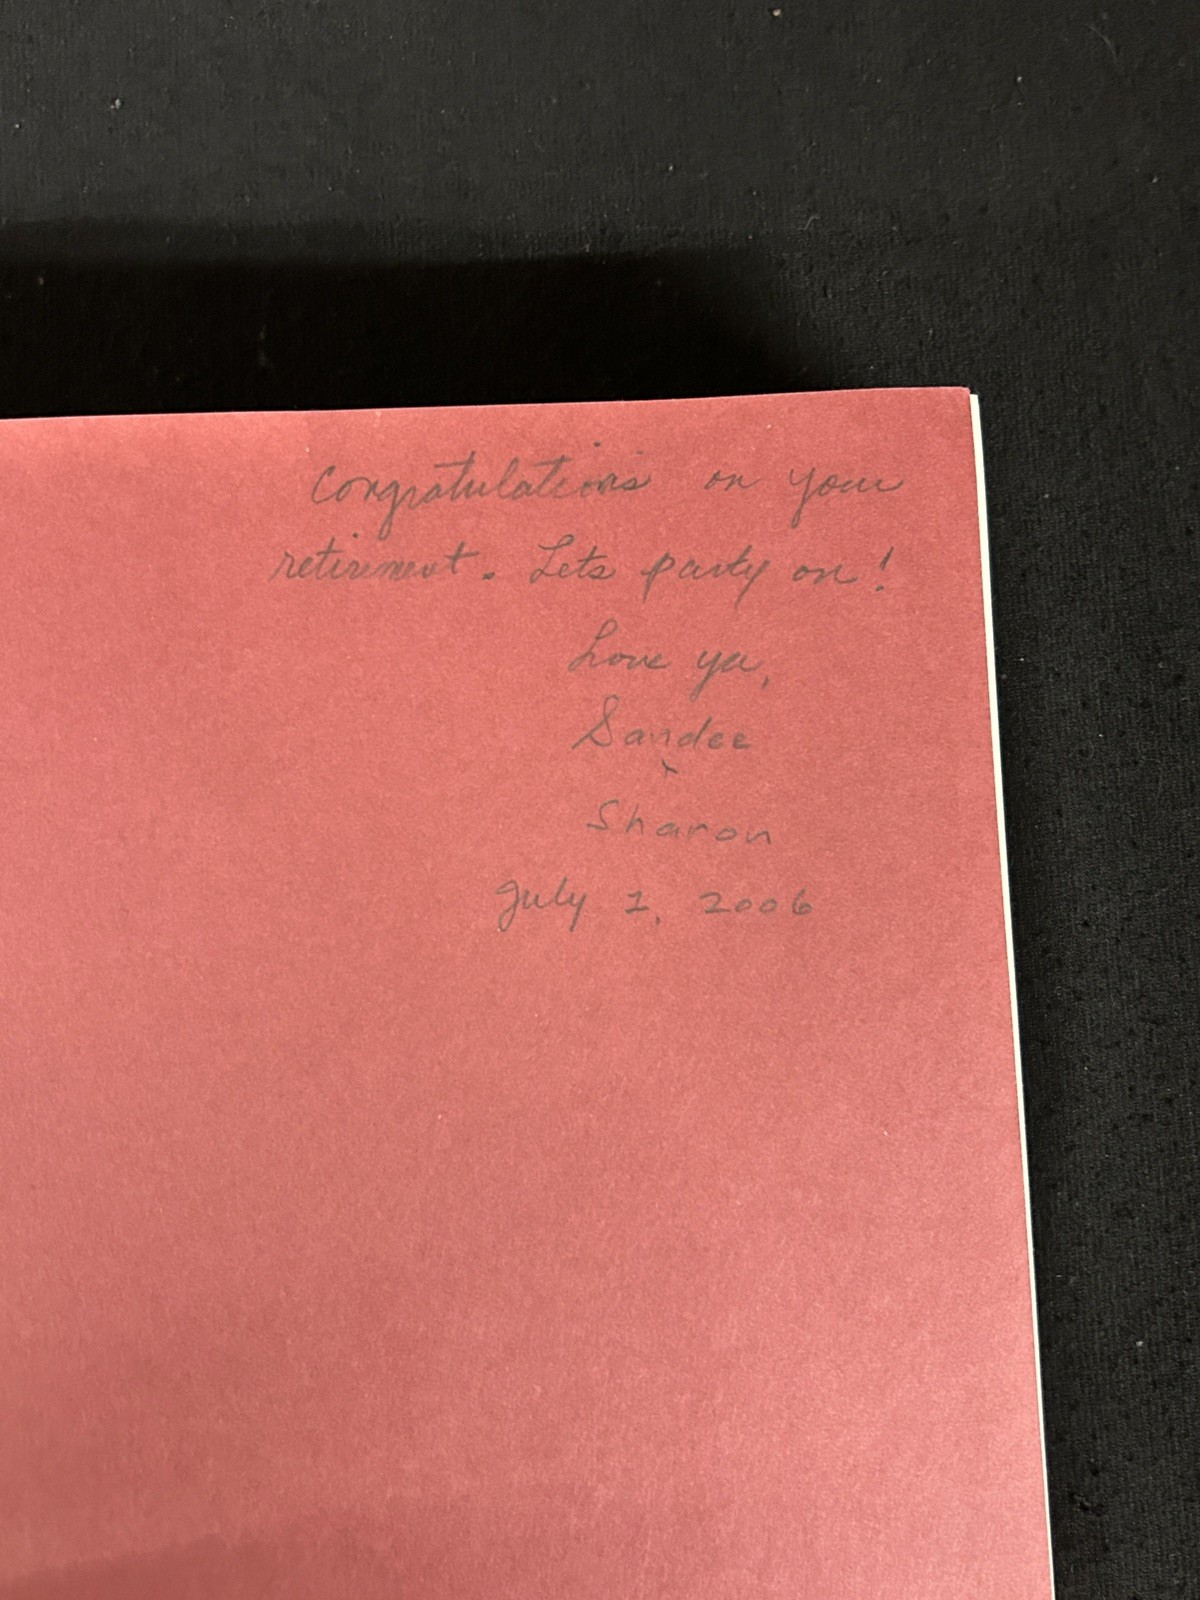 Congratulations on your
retirement. Lets party on!
Love ya,
Sandee
Sharon
July 1, 2006